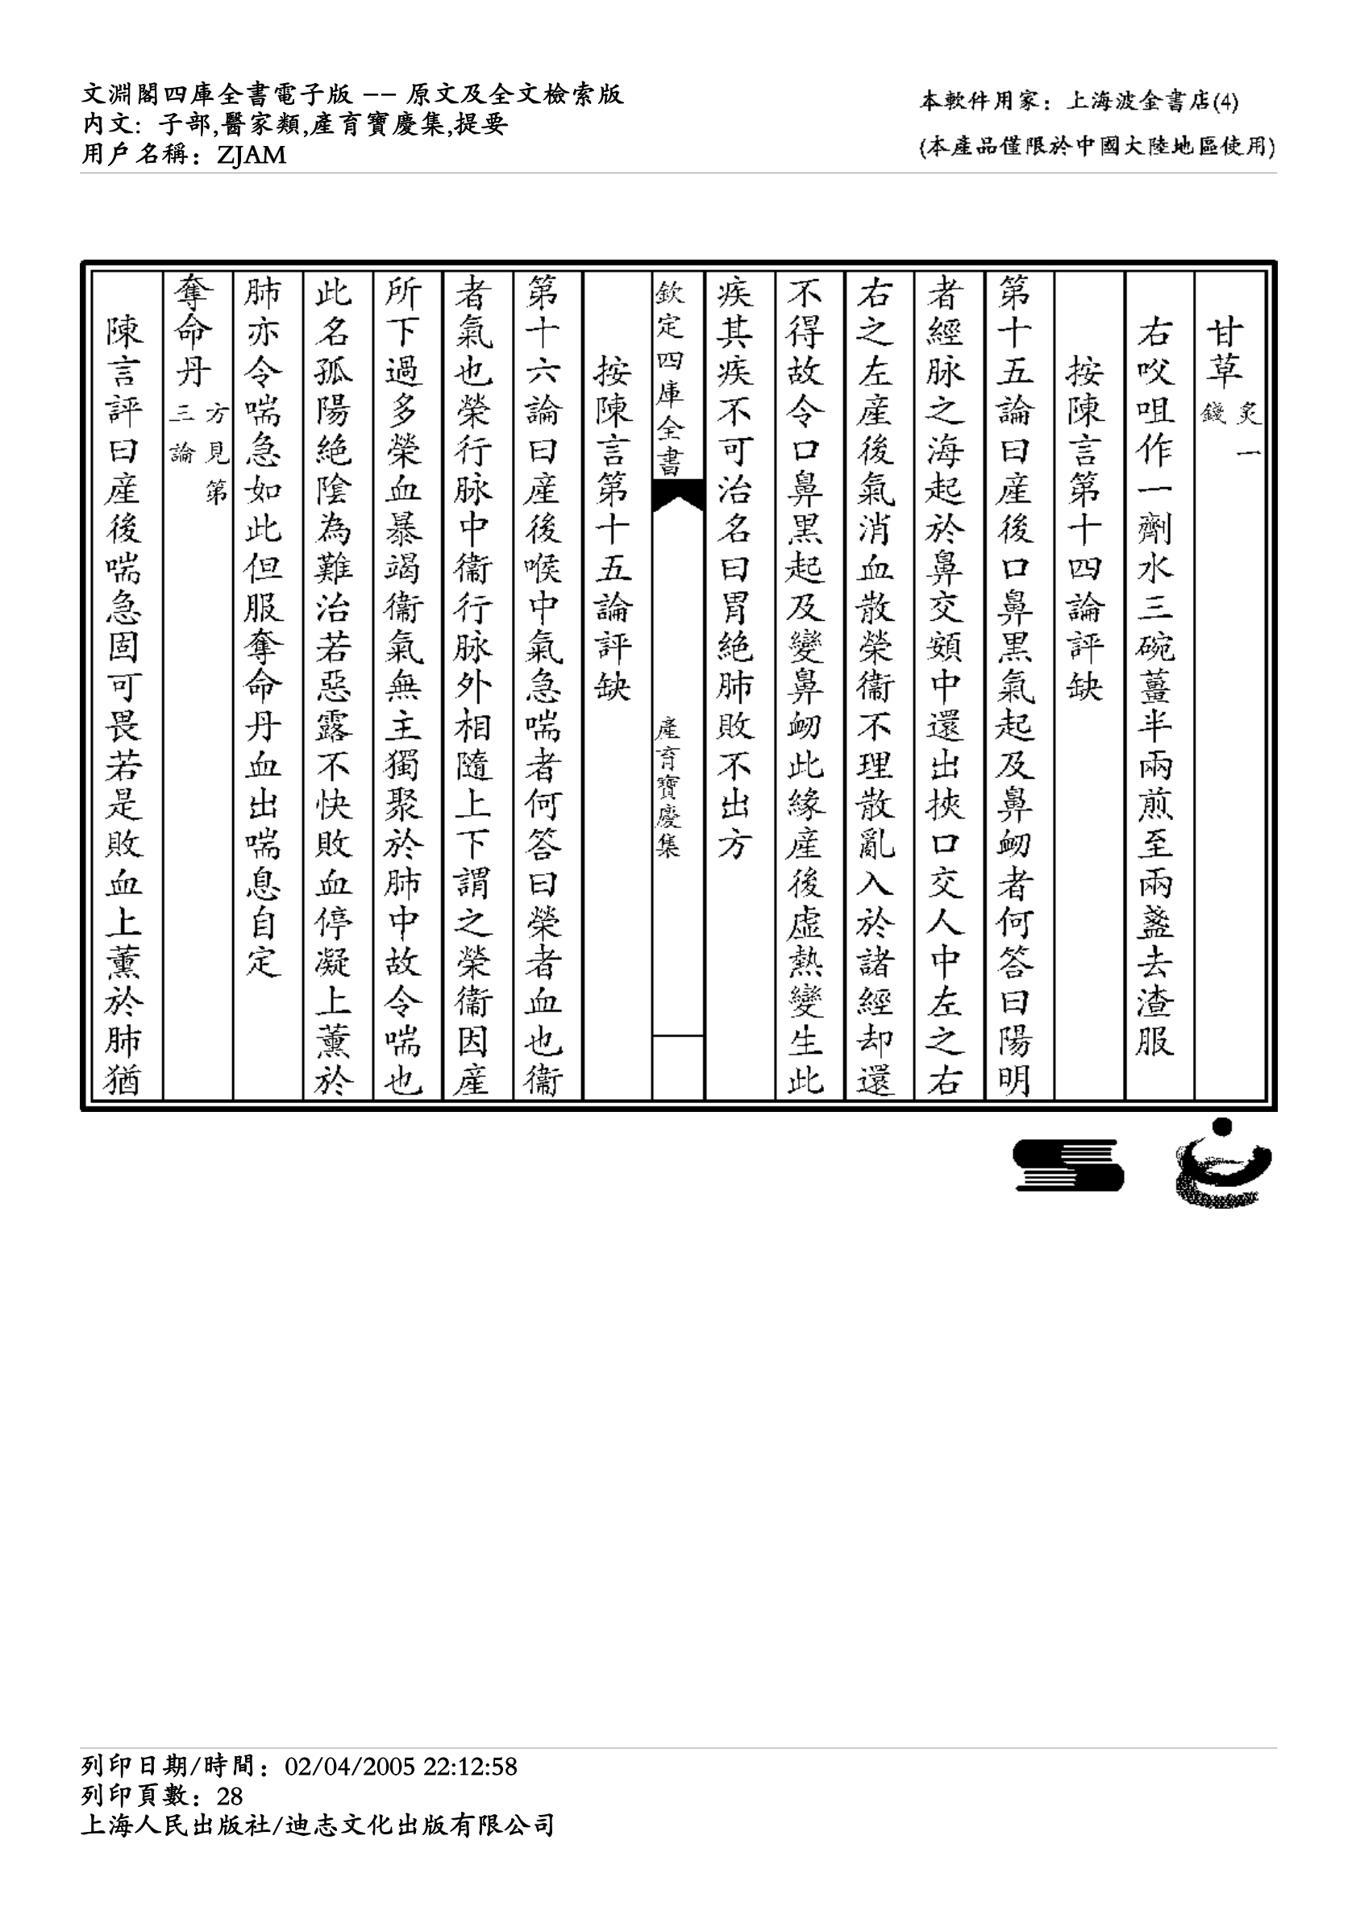 文淵閣四庫全書電子版 -- 原文及全文檢索版
內文: 子部,醫家類,產育寶慶集,提要
用戶名稱: ZJAM
本軟件用家: 上海波金書店(4)
(本產品僅限於中國大陸地區使用)
甘草炙一錢
右㕮咀作一劑水三碗薑半兩煎至兩盞去渣服
按陳言第十四論評缺
第十五論曰產後口鼻黑氣起及鼻衂者何答曰陽明
者經脉之海起於鼻交頞中還出挾口交人中左之右
右之左產後氣消血散榮衞不理散亂入於諸經却還
不得故令口鼻黑起及變鼻衂此緣產後虛熱變生此
疾其疾不可治名曰胃絕肺敗不出方
欽定四庫全書 產育寶慶集
按陳言第十五論評缺
第十六論曰產後喉中氣急喘者何答曰榮者血也衞
者氣也榮行脉中衞行脉外相隨上下謂之榮衞因產
所下過多榮血暴竭衞氣無主獨聚於肺中故令喘也
此名孤陽絕陰為難治若惡露不快敗血停凝上薰於
肺亦令喘急如此但服奪命丹血出喘息自定
奪命丹方見第三論
陳言評曰產後喘急固可畏若是敗血上薰於肺猶
列印日期/時間: 02/04/2005 22:12:58
列印頁數: 28
上海人民出版社/迪志文化出版有限公司